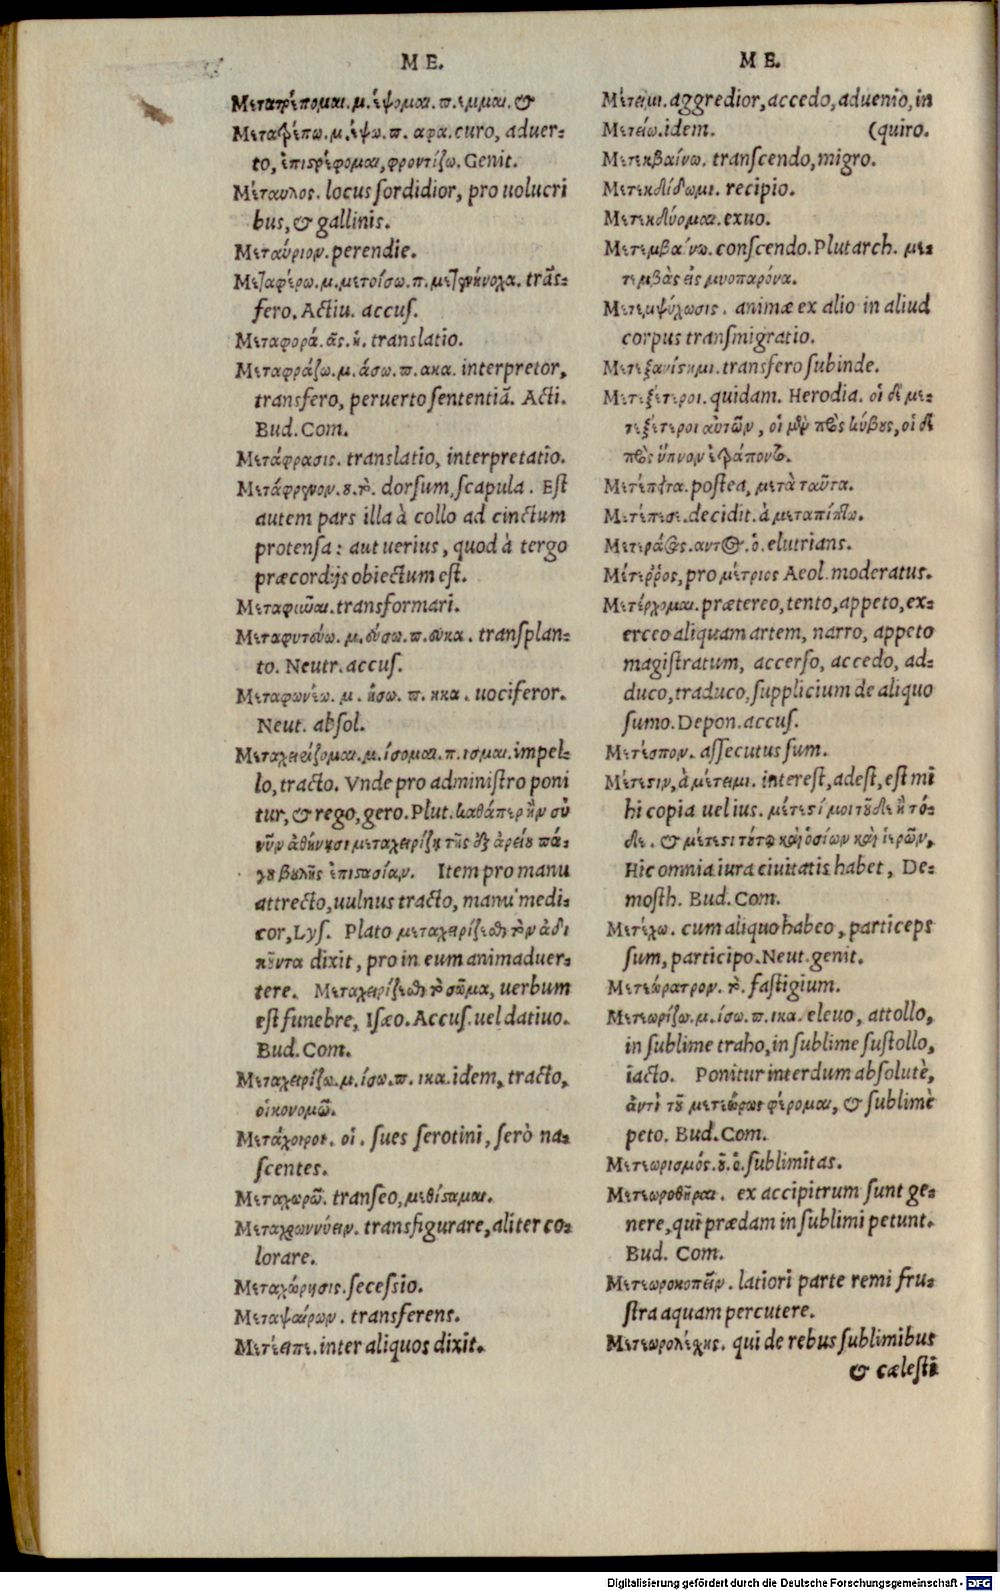 ME.
Μετατρέπομαι.μ.έψομαι.π.εμμαι.&
Μετατρέπω.μ.έψω.π. αφα.curo, aduer-
to, ἐπιστρέφομαι, φροντίζω. Genit.
Μέταυλος. locus sordidior, pro uolucri
bus, & gallinis.
Μεταύριον. perendie.
Μεταφέρω.μ.μετοίσω.π.μετενήνοχα. trãs-
fero. Actiu. accus.
Μεταφορά. ᾶς. ἡ. translatio.
Μεταφράζω.μ.άσω.π.ακα. interpretor,
transfero, peruerto sententiã. Acti.
Bud. Com.
Μετάφρασις. translatio, interpretatio.
Μετάφρενον.ου.τὸ. dorsum, scapula. Est
autem pars illa à collo ad cinctum
protensa: aut uerius, quod à tergo
præcordijs obiectum est.
Μεταφιῶαι. transformari.
Μεταφυτεύω. μ.εύσω.π.ευκα. transplan-
to. Neutr. accus.
Μεταφωνέω. μ. ήσω. π. ηκα. uociferor.
Neut. absol.
Μεταχειρίζομαι.μ.ίσομαι.π.ισμαι. impel-
lo, tracto. Vnde pro administro poni
tur, & rego, gero. Plut. καθάπερ ἣν σὺ
νῦν ἀθήνησι μεταχειρίζῃ τῆς ἐξ ἀρείου πά-
γου βουλῆς ἐπιστασίαν. Item pro manu
attrecto, uulnus tracto, manu medi-
cor, Lys. Plato μεταχειρίζεσθαι τὸν ἀδι
κοῦντα dixit, pro in eum animaduer-
tere. Μεταχειρίζεσθαι τὸ σῶμα, uerbum
est funebre, Isæo. Accus. uel datiuo.
Bud. Com.
Μεταχειρίζω.μ.ίσω.π. ικα. idem, tracto,
οἰκονομῶ.
Μετάχοιροι. οἱ. sues serotini, serò na-
scentes.
Μεταχωρῶ. transeo, μεθίσταμαι.
Μεταχρωννύειν. transfigurare, aliter co-
lorare.
Μεταχώρησις. secessio.
Μεταψαίρων. transferens.
Μετέειπε. inter aliquos dixit.
ME.
Μέτειμι. aggredior, accedo, aduenio, in
Μετείω. idem. (quiro.
Μετεκβαίνω. transcendo, migro.
Μετεκδίδωμι. recipio.
Μετεκδύομαι. exuo.
Μετεμβαίνω. conscendo. Plutarch. με-
τεμβὰς εἰς μυοπαρόνα.
Μετεμψύχωσις. animæ ex alio in aliud
corpus transmigratio.
Μετεξανίστημι. transfero subinde.
Μετεξέτεροι. quidam. Herodia. οἱ δὲ με-
τεξέτεροι αὐτῶν, οἱ μὲν πρὸς κύβους, οἱ δὲ
πρὸς ὕπνον ἐτράποντο.
Μετέπειτα. postea, μετὰ ταῦτα.
Μετέπεσε. decidit. à μεταπίπτω.
Μετεράσας. αντος. ὁ. elutrians.
Μέτεῤῥος, pro μέτριος Aeol. moderatus.
Μετέρχομαι. prætereo, tento, appeto, ex-
erceo aliquam artem, narro, appeto
magistratum, accerso, accedo, ad-
duco, traduco, supplicium de aliquo
sumo. Depon. accus.
Μετέσπον. assecutus sum.
Μέτεστιν, à μέτειμι. interest, adest, est mi
hi copia uel ius. μέτεστί μοι τοῦδε ἢ τό-
δε. & μέτεστι τούτῳ καὶ ὁσίων καὶ ἱερῶν,
Hic omnia iura ciuitatis habet, De-
mosth. Bud. Com.
Μετέχω. cum aliquo habeo, particeps
sum, participo. Neut. genit.
Μετεώρατρον. τὸ. fastigium.
Μετεωρίζω.μ.ίσω.π.ικα. eleuo, attollo,
in sublime traho, in sublime sustollo,
iacto. Ponitur interdum absolutè,
ἀντὶ τοῦ μετέωρος φέρομαι, & sublimè
peto. Bud. Com.
Μετεωρισμός.οῦ.ὁ. sublimitas.
Μετεωροθῆραι. ex accipitrum sunt ge-
nere, qui prædam in sublimi petunt.
Bud. Com.
Μετεωροκοπεῖν. latiori parte remi fru-
stra aquam percutere.
Μετεωρολέχης. qui de rebus sublimibus
& cælesti
Digitalisierung gefördert durch die Deutsche Forschungsgemeinschaft - DFG